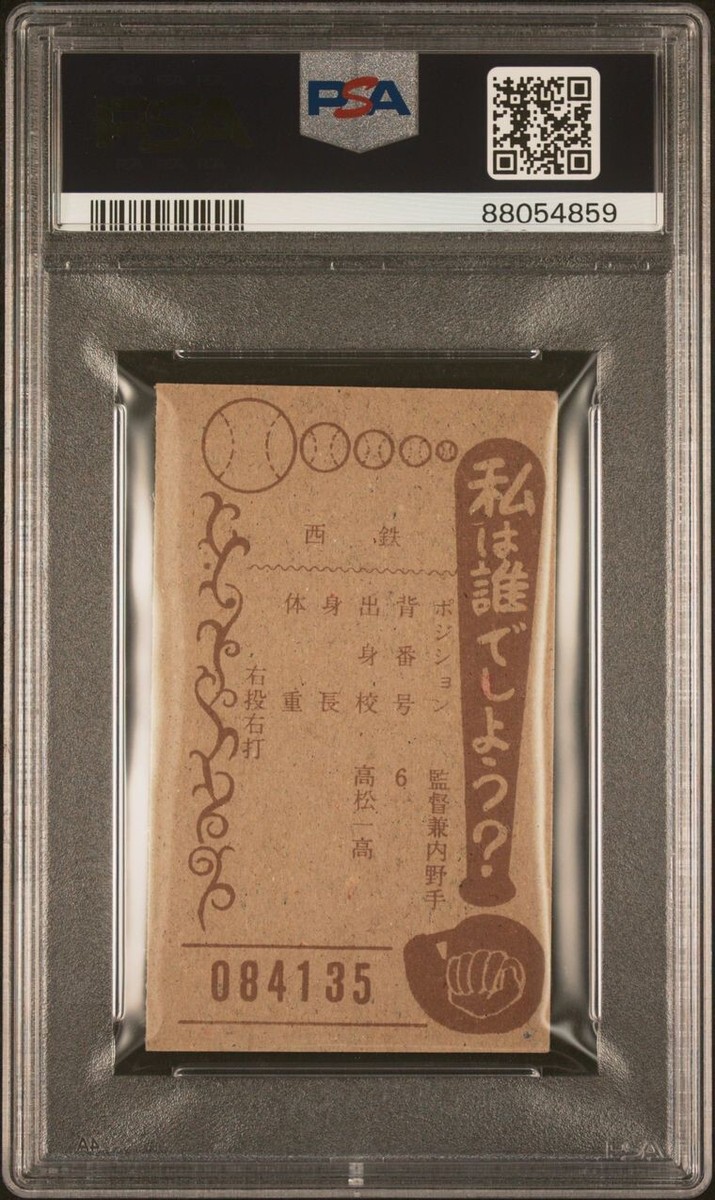 PSA
88054859
私は誰でしよう?
西鉄
ポジション 監督兼内野手
背番号 6
出身校 高松一高
身長
体重
右投右打
084135